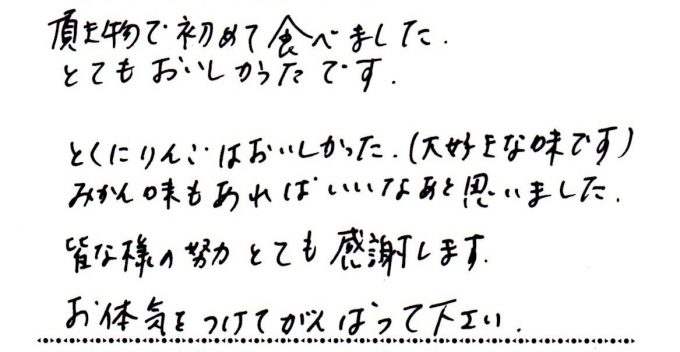 頂き物で初めて食べました.
とてもおいしかったです.
とくにりんごはおいしかった.(大好きな味です)
みかん味もあればいいなあと思いました.
皆な様の努力とても感謝します.
お体気をつけてがんばって下さい.